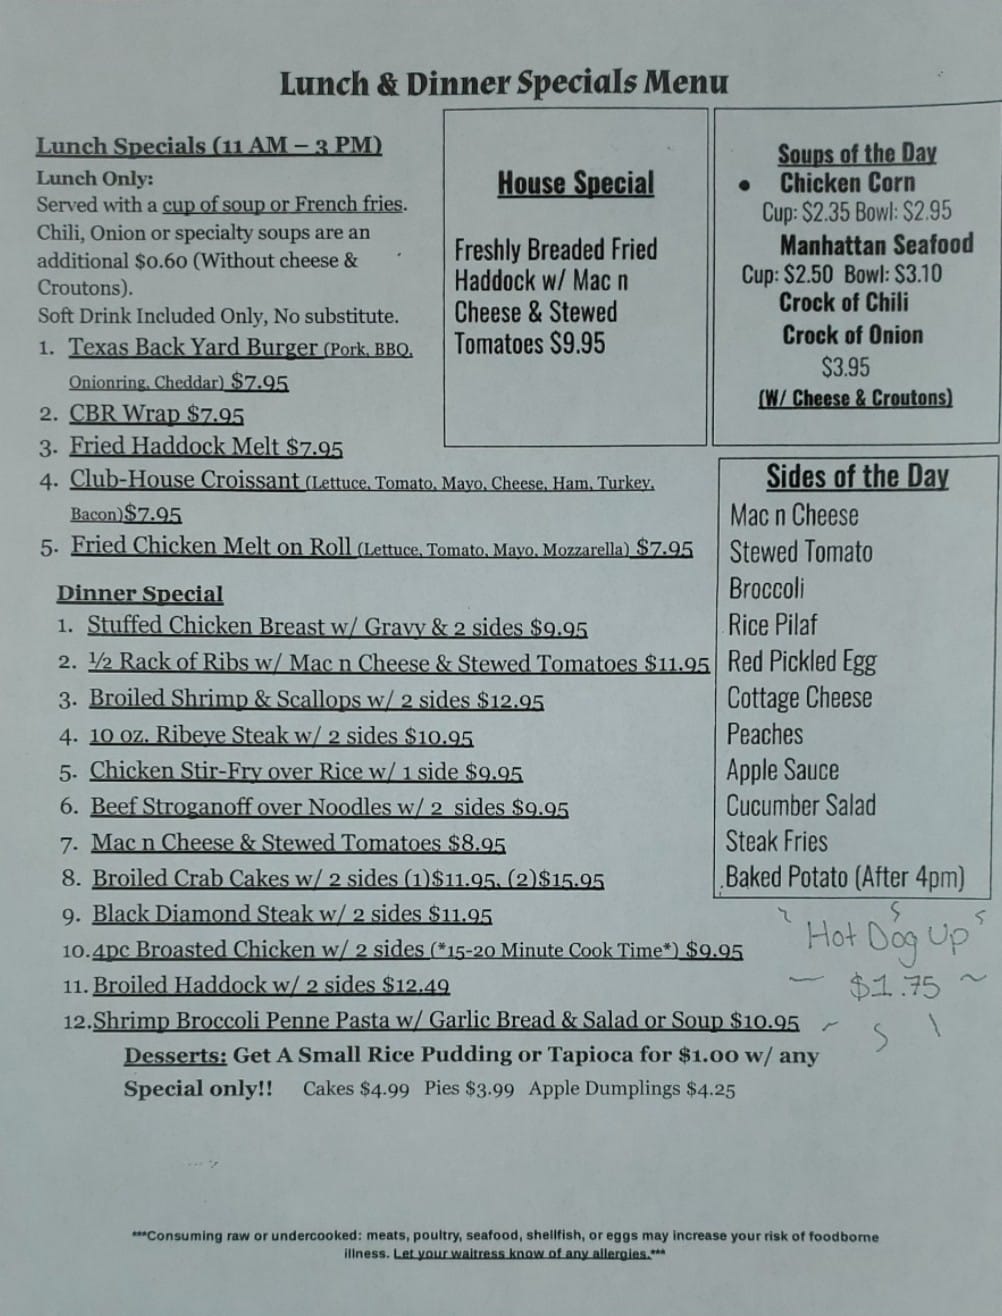 Lunch & Dinner Specials Menu
Lunch Specials (11 AM – 3 PM)
Lunch Only:
Served with a cup of soup or French fries.
Chili, Onion or specialty soups are an
additional $0.60 (Without cheese &
Croutons).
Soft Drink Included Only, No substitute.
1. Texas Back Yard Burger (Pork, BBQ,
Onionring, Cheddar) $7.95
2. CBR Wrap $7.95
3. Fried Haddock Melt $7.95
4. Club-House Croissant (Lettuce, Tomato, Mayo, Cheese, Ham, Turkey,
Bacon)$7.95
5. Fried Chicken Melt on Roll (Lettuce, Tomato, Mayo, Mozzarella) $7.95
House Special
Freshly Breaded Fried
Haddock w/ Mac n
Cheese & Stewed
Tomatoes $9.95
Soups of the Day
• Chicken Corn
Cup: $2.35 Bowl: $2.95
Manhattan Seafood
Cup: $2.50 Bowl: $3.10
Crock of Chili
Crock of Onion
$3.95
(W/ Cheese & Croutons)
Dinner Special
1. Stuffed Chicken Breast w/ Gravy & 2 sides $9.95
2. ½ Rack of Ribs w/ Mac n Cheese & Stewed Tomatoes $11.95
3. Broiled Shrimp & Scallops w/ 2 sides $12.95
4. 10 oz. Ribeye Steak w/ 2 sides $10.95
5. Chicken Stir-Fry over Rice w/ 1 side $9.95
6. Beef Stroganoff over Noodles w/ 2 sides $9.95
7. Mac n Cheese & Stewed Tomatoes $8.95
8. Broiled Crab Cakes w/ 2 sides (1)$11.95, (2)$15.95
9. Black Diamond Steak w/ 2 sides $11.95
10.4pc Broasted Chicken w/ 2 sides (*15-20 Minute Cook Time*) $9.95
11. Broiled Haddock w/ 2 sides $12.49
12.Shrimp Broccoli Penne Pasta w/ Garlic Bread & Salad or Soup $10.95
Sides of the Day
Mac n Cheese
Stewed Tomato
Broccoli
Rice Pilaf
Red Pickled Egg
Cottage Cheese
Peaches
Apple Sauce
Cucumber Salad
Steak Fries
Baked Potato (After 4pm)
Hot Dog Up
$1.75
Desserts: Get A Small Rice Pudding or Tapioca for $1.00 w/ any
Special only!! Cakes $4.99 Pies $3.99 Apple Dumplings $4.25
***Consuming raw or undercooked: meats, poultry, seafood, shellfish, or eggs may increase your risk of foodborne
illness. Let your waitress know of any allergies.***